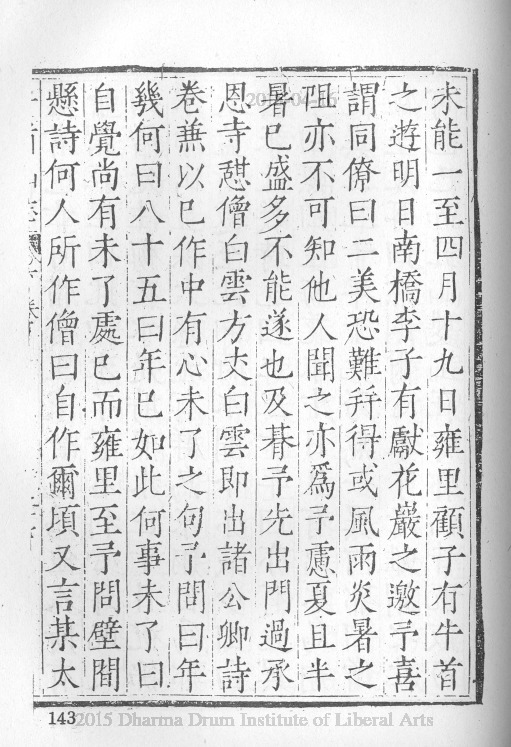 未能一至四月十九日雍里顧子有牛首
之遊明日南橋李子有獻花巖之邀予喜
謂同僚曰二美恐難并得或風雨炎暑之
阻亦不可知他人聞之亦爲予慮夏且半
暑巳盛多不能遂也及朞予先出門過承
恩寺憇僧白雲方丈白雲即出諸公卿詩
卷兼以巳作中有心未了之句予問曰年
幾何曰八十五曰年巳如此何事未了曰
自覺尚有未了處巳而雍里至予問壁間
懸詩何人所作僧曰自作爾頃又言某太
143
2015 Dharma Drum Institute of Liberal Arts